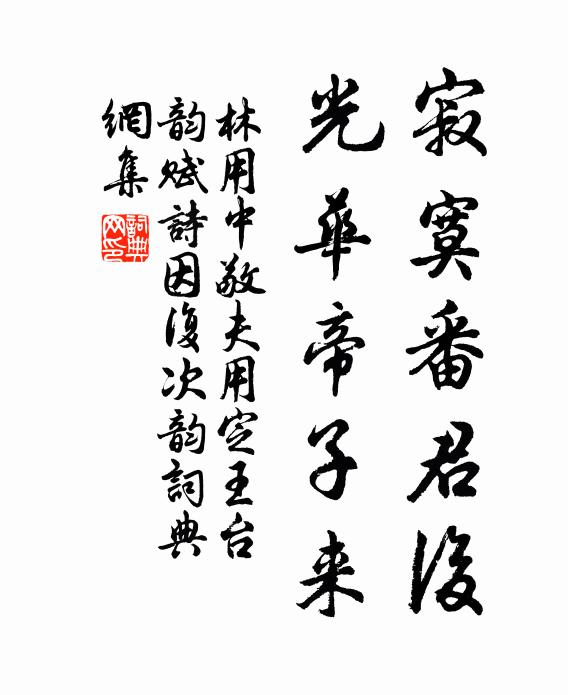 寂寞番君後
光華帝子来
林用中敬夫用定王台
韵賦詩因復次韵詞典
網集
詞典
网印